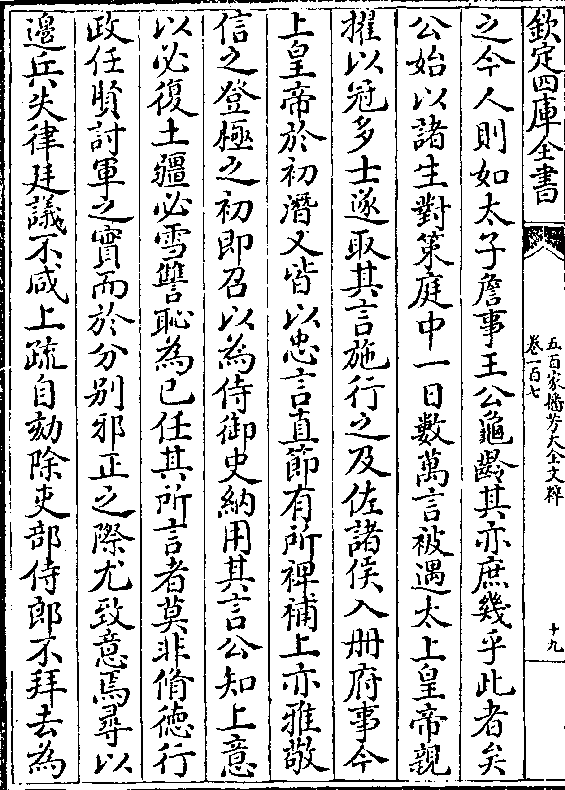 欽定四庫全書
五百家播芳大全文粹
卷一百七
十九
之今人則如太子詹事王公龜齡其亦庶幾乎此者矣
公始以諸生對策庭中一日數萬言被遇太上皇帝親
擢以冠多士遂取其言施行之及佐諸侯入册府事今
上皇帝於初潛又皆以忠言直節有所裨補上亦雅敬
信之登極之初即召以為侍御史納用其言公知上意
以必復土疆必雪讐恥為己任其所言者莫非脩徳行
政任賢討軍之實而於分别邪正之際尤致意焉尋以
邊兵失律廷議不咸上疏自劾除吏部侍郎不拜去為